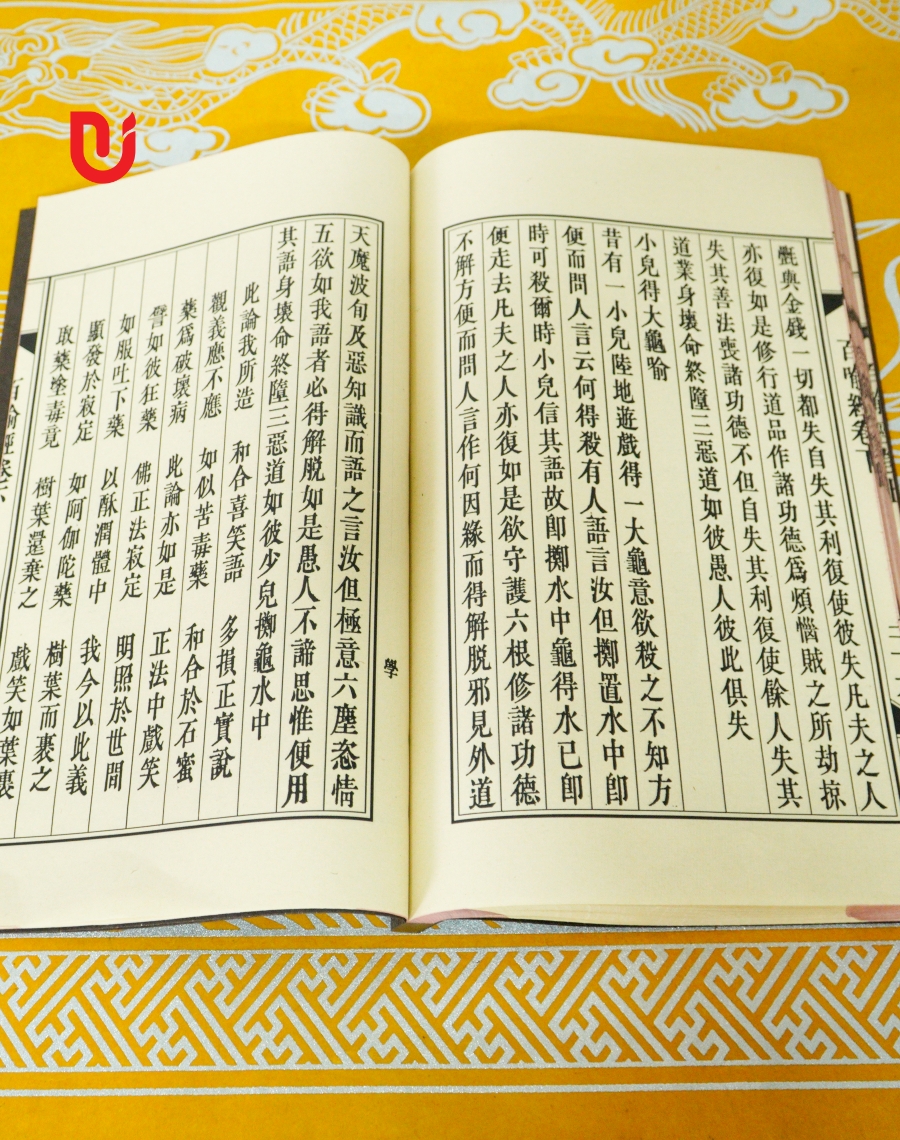 氎與金錢一切都失自失其利復使彼失凡夫之人
亦復如是修行道品作諸功德爲煩惱賊之所劫掠
失其善法喪諸功德不但自失其利復使餘人失其
道業身壞命終墮三惡道如彼愚人彼此俱失
小兒得大龜喻
昔有一小兒陸地遊戲得一大龜意欲殺之不知方
便而問人言云何得殺有人語言汝但擲置水中即
時可殺爾時小兒信其語故即擲水中龜得水已即
便走去凡夫之人亦復如是欲守護六根修諸功德
不解方便而問人言作何因緣而得解脫邪見外道
天魔波旬及惡知識而語之言汝但極意六塵恣情
五欲如我語者必得解脫如是愚人不諦思惟便用
其語身壞命終墮三惡道如彼少兒擲龜水中
此論我所造 和合喜笑語 多損正實說
觀義應不應 如似苦毒藥 和合於石蜜
藥爲破壞病 此論亦如是 正法中戲笑
譬如彼狂藥 佛正法寂定 明照於世間
如服吐下藥 以酥潤體中 我今以此義
顯發於寂定 如阿伽陀藥 樹葉而裹之
取藥塗毒竟 樹葉還棄之 戲笑如葉裹
學